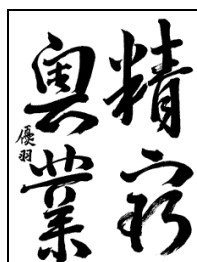 精窮
奥業
優羽